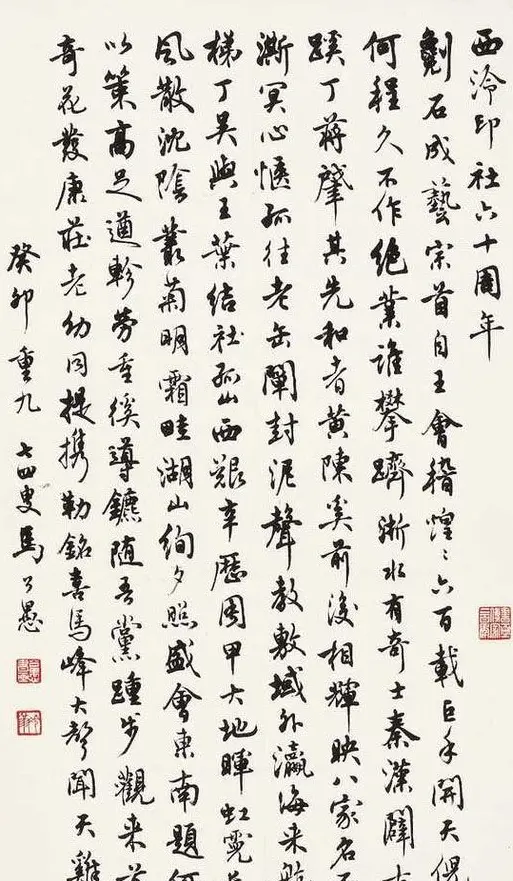 西泠印社六十周年
劖石成藝宗首自王會稽惶〻六百載巨手開天倪
何程久不作絕業誰攀躋浙水有奇士秦漢闢
蹊丁蔣肇其先和者黃陳奚前後相輝映八家名
澌冥心愜孤往老缶闡封泥聲教敷域外瀛海來航
梯丁吳與王葉結社孤山西艱辛歷周甲大地暉虹霓
風散沈陰叢菊明霜畦湖山絢夕照盛會東南題
以策高足遒軫勞重徯導鑣隨吾黨踵步觀來
奇花發康莊老幼同提攜勒銘喜馬峰大聲聞天雞
癸卯重九 七四叟馬公愚